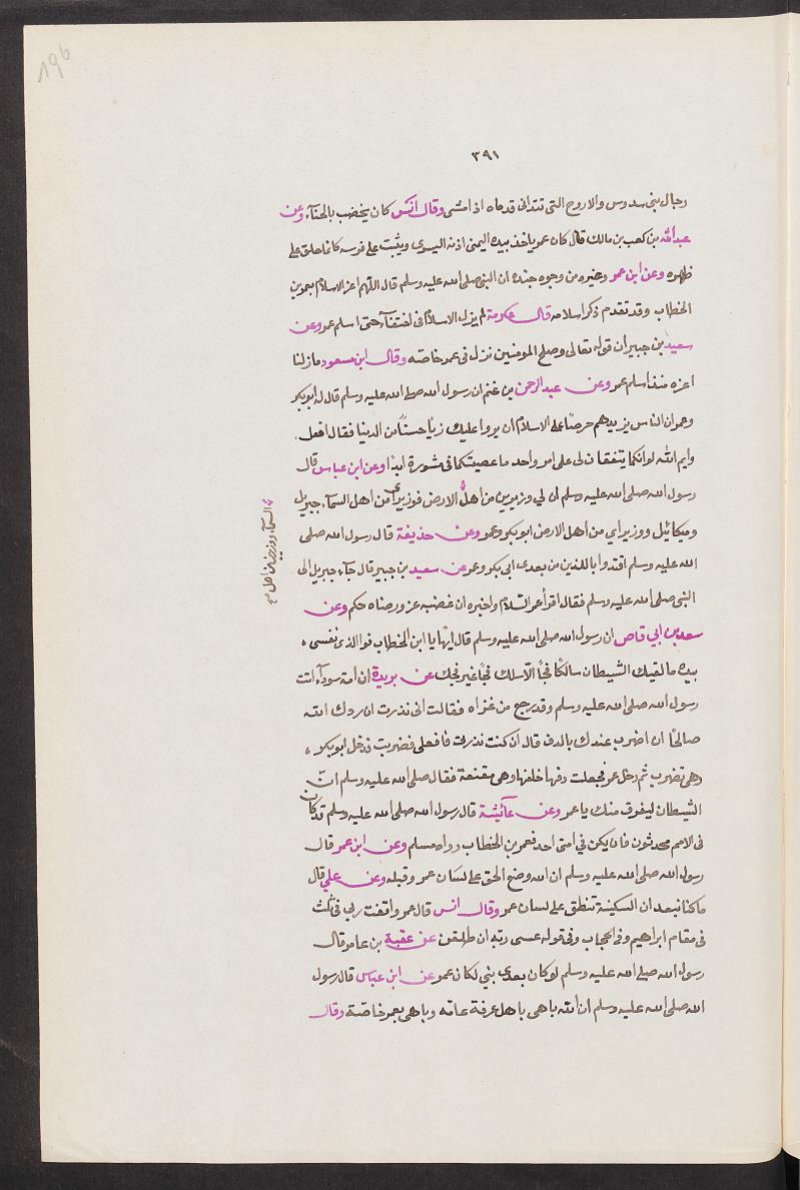 196
٣٩١
رجال بني سدوس والاروح التي تتدانى قدماه اذا مشى وقال انس كان يخضب بالحنآء وعن
عبدالله بن كعب بن مالك قال كان عمر ياخذ بيده اليمنى اذنه اليسرى ويثب على فرسه كانما خلق على
ظهره وعن ابن عمر وغيره من وجوه جيده ان النبي صلى الله عليه وسلم قال اللهم اعز الاسلام بعمر بن
الخطاب وقد تقدم ذكر اسلامه قال عكرمة لم يزل الاسلام في اختفآء حتى اسلم عمر وعن
سعيد بن جبير ان قوله تعالى وصلح المومنين نزل في عمر خاصته وقال ابن مسعود ما زلنا
اعزه منذ اسلم عمر وعن عبد الرحمن بن غنم ان رسول الله صلى الله عليه وسلم قال له ابوبكر
وعمر ان الناس يزيدهم حرصًا على الاسلام ان يروا عليك زيًا حسنًا من الدنيا فقال افعل
وايم الله لو انكما يتفقان لي على امر واحد ما عصيتكما في مشورة ابدًا وعن ابن عباس قال
رسول الله صلى الله عليه وسلم ان لي وزيرين من اهل الارض فوزيراي من اهل السمآء جبريل
وميكائيل ووزيراي من اهل الارض ابوبكر وعمر وعن حذيفة قال رسول الله صلى
الله عليه وسلم اقتدوا باللذين من بعدي ابي بكر وعمر عن سعيد بن جبير قال جآء جبريل الى
النبي صلى الله عليه وسلم فقال اقرأ عمر السّلام واخبره ان غضبه عز ورضاه حكم وعن
سعد بن ابي قاص ان رسول الله صلى الله عليه وسلم قال ايهًا يا ابن الخطاب فوالذي نفسي
بيده ما لقيك الشيطان سالكًا فجًا الّا سلك فجًا غير فجك عن بريدة ان امة سودآء اتت
رسول الله صلى الله عليه وسلم وقد رجع من غزاه فقالت اني نذرت ان ردك الله
صالحًا ان اضرب عندك بالدف قال ان كنت نذرت فافعلى فضربت فدخل ابوبكر
وهي تضرب ثم دخل عمر فجعلت دفها خلفها وهي مقنعة فقال صلى الله عليه وسلم انّ
الشيطان ليفرق منك يا عمر وعن عآئيشة قال رسول الله صلى الله عليه وسلم قد كان
في الامم محدثون فان يكن في امتي احد فعمر بن الخطاب رواه مسلم وعن ابن عمر قال
رسول الله صلى الله عليه وسلم ان الله وضع الحق على لسان عمر وقبله وعن علي قال
ما كنا نبعد ان السكينة تنطق على لسان عمر وقال انس قال عمر وافقت ربي في ثلث
في مقام ابراهيم وفي الحجاب وفي قوله عسى ربه ان طلقن عن عقبة بن عامر قال
رسول الله صلى الله عليه وسلم لو كان بعدي نبي لكان عمر عن ابن عباس قال رسول
الله صلى الله عليه وسلم ان الله باهى باهل عرفة عامه وباهى بعمر خاصّة وقال
السمآء ووزيرين من اهل